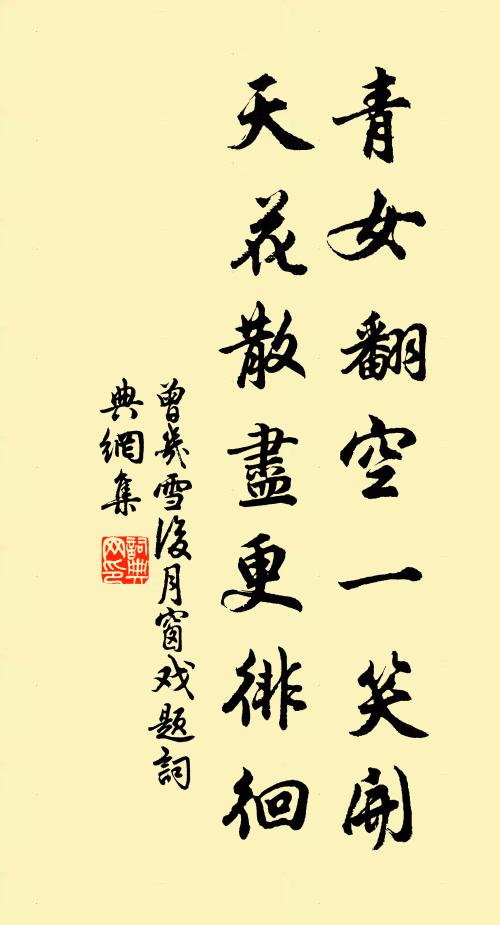 青女翻空一笑開
天花散盡更徘徊
曾幾雪後月窗戏題詞
典網集
詞典
网印